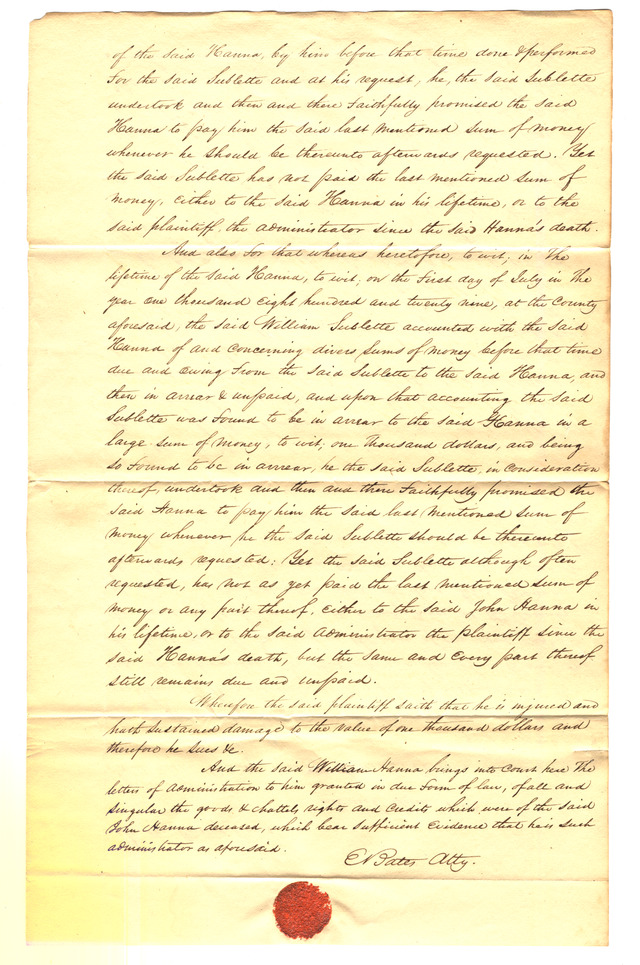 of the said Hanna, by him before that time done & performed
For the said Sublette and at his request, he, the said Sublette
undertook and then and there Faithfully promised the said
Hanna to pay him the said last mentioned sum of money
whenever he should be thereunto afterwards requested. Yet
the said Sublette has not paid the last mentioned sum of
money, either to the said Hanna in his lifetime, or to the
said plaintiff, the administrator since the said Hanna's death.
And also For that whereas heretofore, to wit; in The
lifetime of the said Hanna, to wit; on the First day of July in The
year one thousand Eight hundred and twenty nine, at the County
aforesaid, the said William Sublette accounted with the said
Hanna of and concerning divers sums of money before that time
due and owing From the said Sublette to the said Hanna, and
then in arrear & unpaid, and upon that accounting the said
Sublette was Found to be in arrear to the said Hanna in a
large sum of money, to wit, one thousand dollars, and being
so Found to be in arrear, he the said Sublette, in consideration
thereof, undertook and then and there Faithfully promised the
said Hanna to pay him the said last mentioned sum of
money whenever he the said Sublette should be thereunto
afterwards requested: Yet the said Sublette although often
requested, has not as yet paid the last mentioned sum of
money or any part thereof, Either to the said John Hanna in
his lifetime, or to the said administrator the plaintiff since the
said Hanna's death, but the same and every part thereof
still remains due and unpaid.
Wherefore the said plaintiff saith that he is injured and
hath sustained damage to the value of one thousand dollars and
therefore he sues &c.
And the said William Hanna brings into Court here The
letters of administration to him granted in due Form of law, of all and
singular the goods & chattels, rights and credits which were of the said
John Hanna deceased, which bear sufficient Evidence that he is such
administrator as aforesaid.
E Bates Atty.